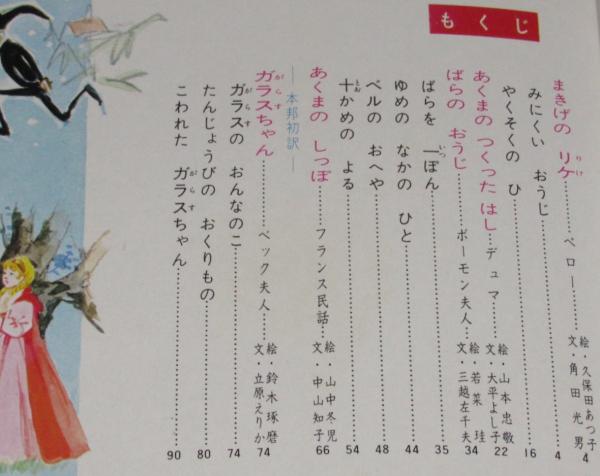 もくじ
まきげの リケ りけ ペロー 絵・久保田あつ子 文・角田光男 4
みにくい おうじ 4
やくそくの ひ 16
あくまの つくった はし デュマ 絵・山本忠敬 文・大平よし子 22
ばらの おうじ ボーモン夫人 絵・若菜珪 文・三越左千夫 34
ばらを 一ぽん いっ 35
ゆめの なかの ひと 44
ベルの おへや 48
十かめの よる とお 54
あくまの しっぽ フランス民話 絵・山中冬児 文・中山知子 66
―本邦初訳―
ガラスちゃん がらす ベック夫人 絵・鈴木琢磨 文・立原えりか 74
ガラスの おんなのこ がらす 74
たんじょうびの おくりもの 80
こわれた ガラスちゃん がらす 90